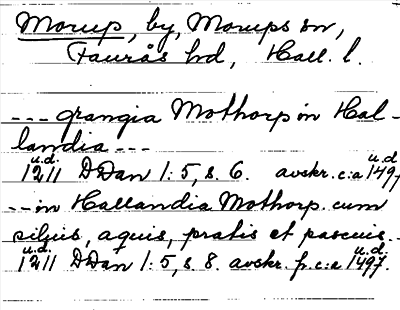 Morup, by, Morups sn,
Faurås hd, Hall. l.
--- grangia Mothorp in Hal-
landia ---
u.d. u.d.
1211 DDan 1:5, s. 6. avskr. c:a 1497
-- in Hallandia Mothorp. cum
siluis, aquis, pratis et pascuis --
u.d. u.d.
1211 DDan 1:5, s. 8. avskr. fr. c:a 1497.